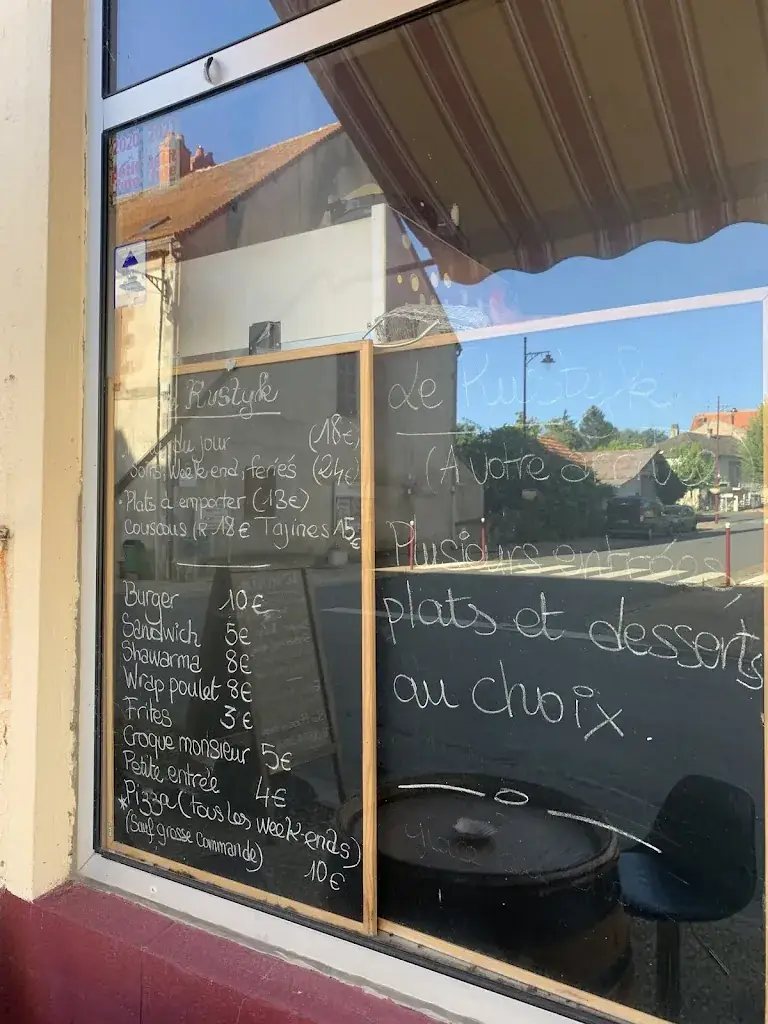 Rustyk
du jour (18€)
soirs, Week-end, feriés (24€)
• Plats à emporter (13€)
Couscous (R 18€ Tajines 15€
Burger 10€
Sandwich 5€
Shawarma 8€
Wrap poulet 8€
Frites 3€
Croque monsieur 5€
Petite entrée 4€
*Pizza (tous les week-ends)
(Sauf grosse commande)
10€
Le Rustyk
(A votre
Plusieurs entrées
plats et desserts
au choix.